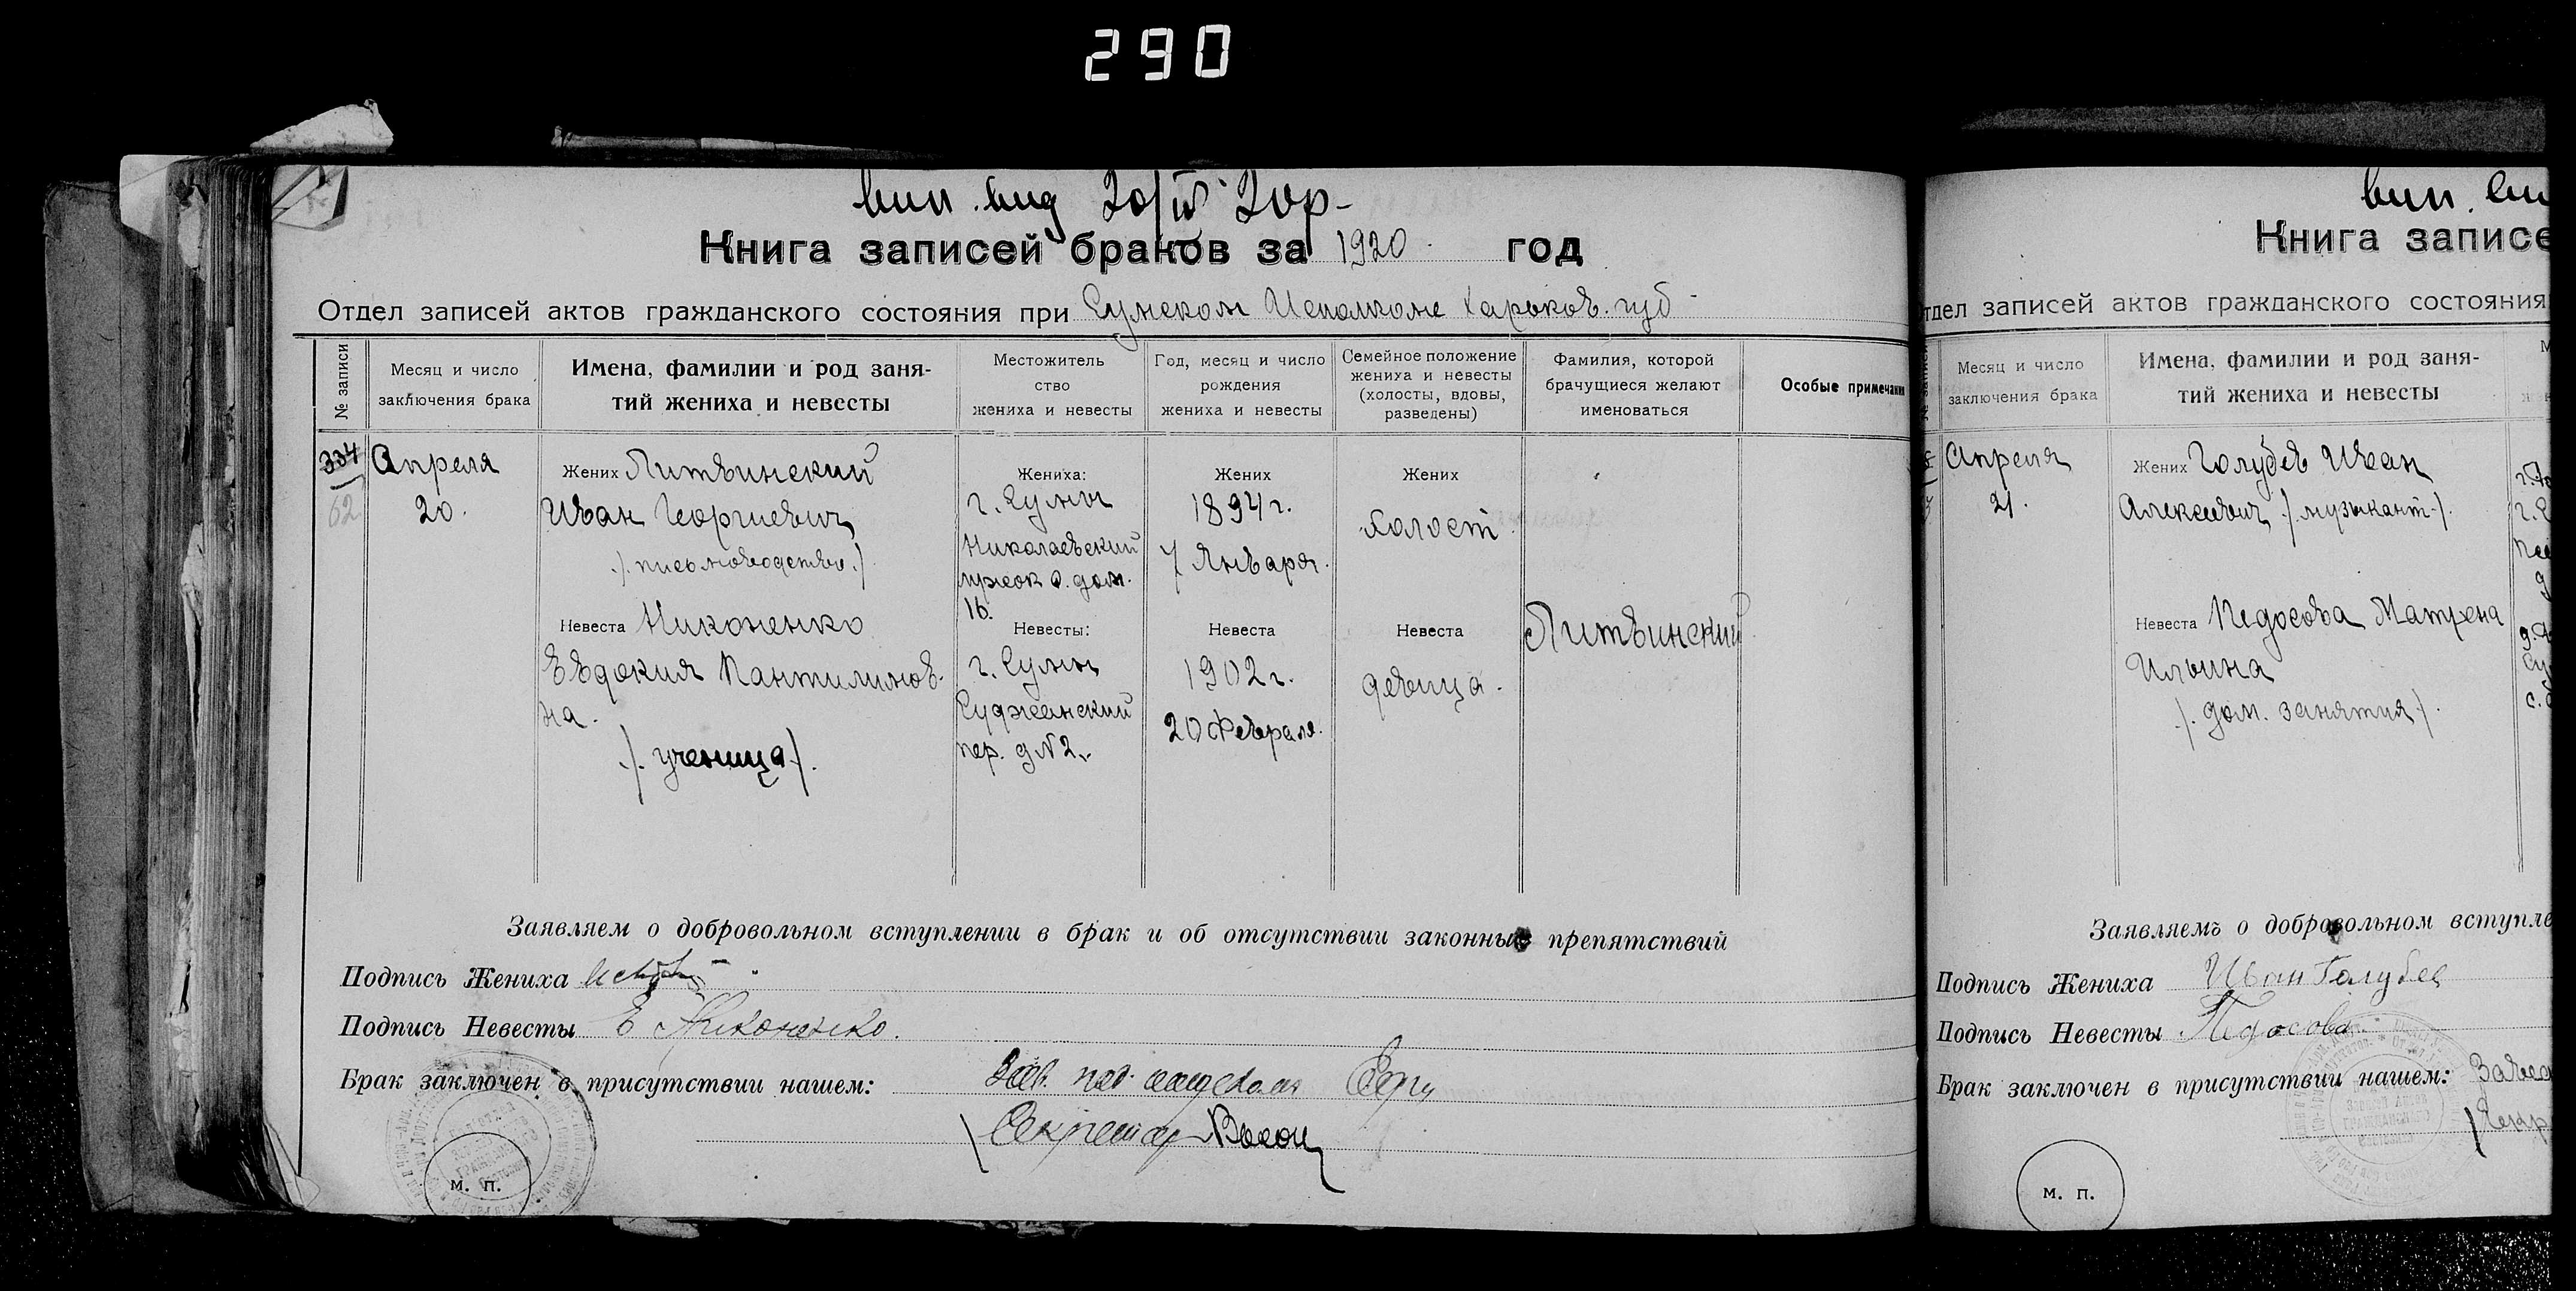 290
вип. вид 20/IV 20р-
Книга записей браков за 1920 год
Отдел записей актов гражданского состояния при Сумском Исполкоме Харьков. губ-
№ записи
Месяц и число
заключения брака
Имена, фамилии и род заня-
тий жениха и невесты
Местожитель
ство
жениха и невесты
Год, месяц и число
рождения
жениха и невесты
Семейное положение
жениха и невесты
(холосты, вдовы,
разведены)
Фамилия, которой
брачущиеся желают
именоваться
Особые примечани
334
62
Апреля
20.
Жених Литвинский
Иван Георгиевич
/. письмоводство ./
Невеста Никоненко
Евдокия Пантилимов-
на.
/. ученица /.
Жениха:
г. Сумы
Николаевский
лужок д. дом.
16.
Невесты:
г. Сумы
Суджанский
пер. д N 2.
Жених
1894 г.
7 Января.
Невеста
1902 г.
20 Февраля.
Жених
Холост
Невеста
девица.
Литвинский
Заявляем о добровольном вступлении в брак и об отсутствии законных препятствий
Подпись Жениха
Подпись Невесты Е Никоненко.
Брак заключен в присутствии нашем: Зав.
Секретар
м. п.
вип. ви
Книга записе
тдел записей актов гражданского состояния
№ записи
Месяц и число
заключения брака
Имена, фамилии и род заня-
тий жениха и невесты
Апреля
21.
Жених Голубев Иван
Алексеевич /. музыкант /.
Невеста Педосова Матрена
Ильина
/. дом. занятия /.
Заявляемъ о добровольном вступле
Подпись Жениха Иван Голубев
Подпись Невесты Педосова
Брак заключен в присутствии нашем: Завед
Секр
м. п.